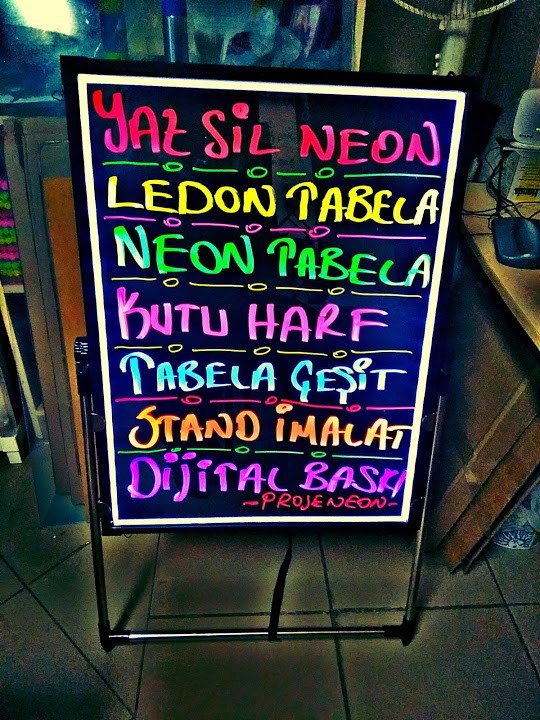 YAZ SiL NEON
LEDON TABELA
NEON TABELA
KUTU HARF
TABELA ÇEŞiT
STAND iMALAT
DijiTAL BASKI
-PROJENEON-